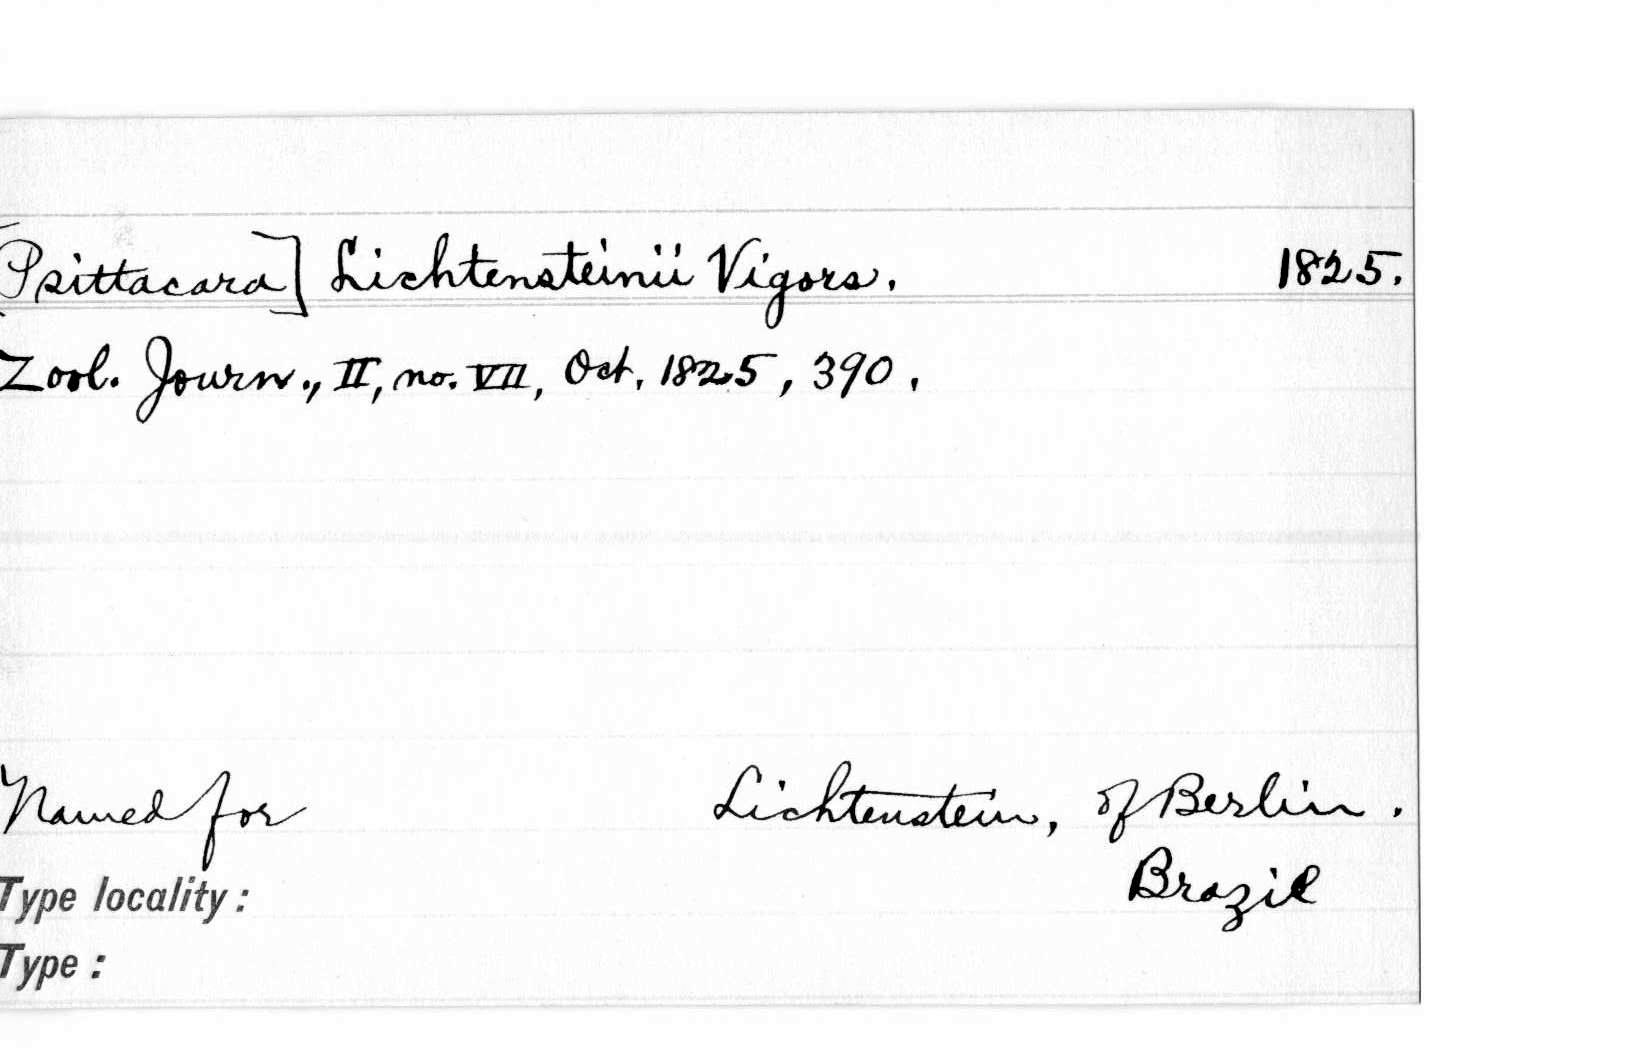 [Psittacara] Lichtensteinii Vigors. 1825.
Zool. Journ., II, no. VII, Oct. 1825, 390.
Named for Lichtenstein, of Berlin.
Brazil
Type locality:
Type: